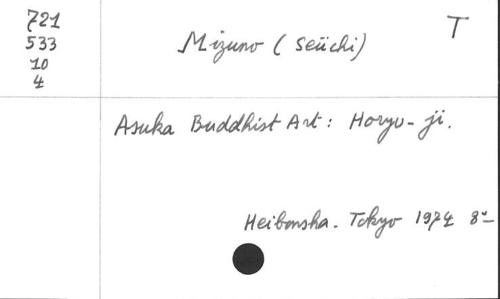 721
533
10
4
T
Mizuno (Seiichi)
Asuka Buddhist Art: Horyu-ji.
Heibonsha. Tokyo 1974 8º